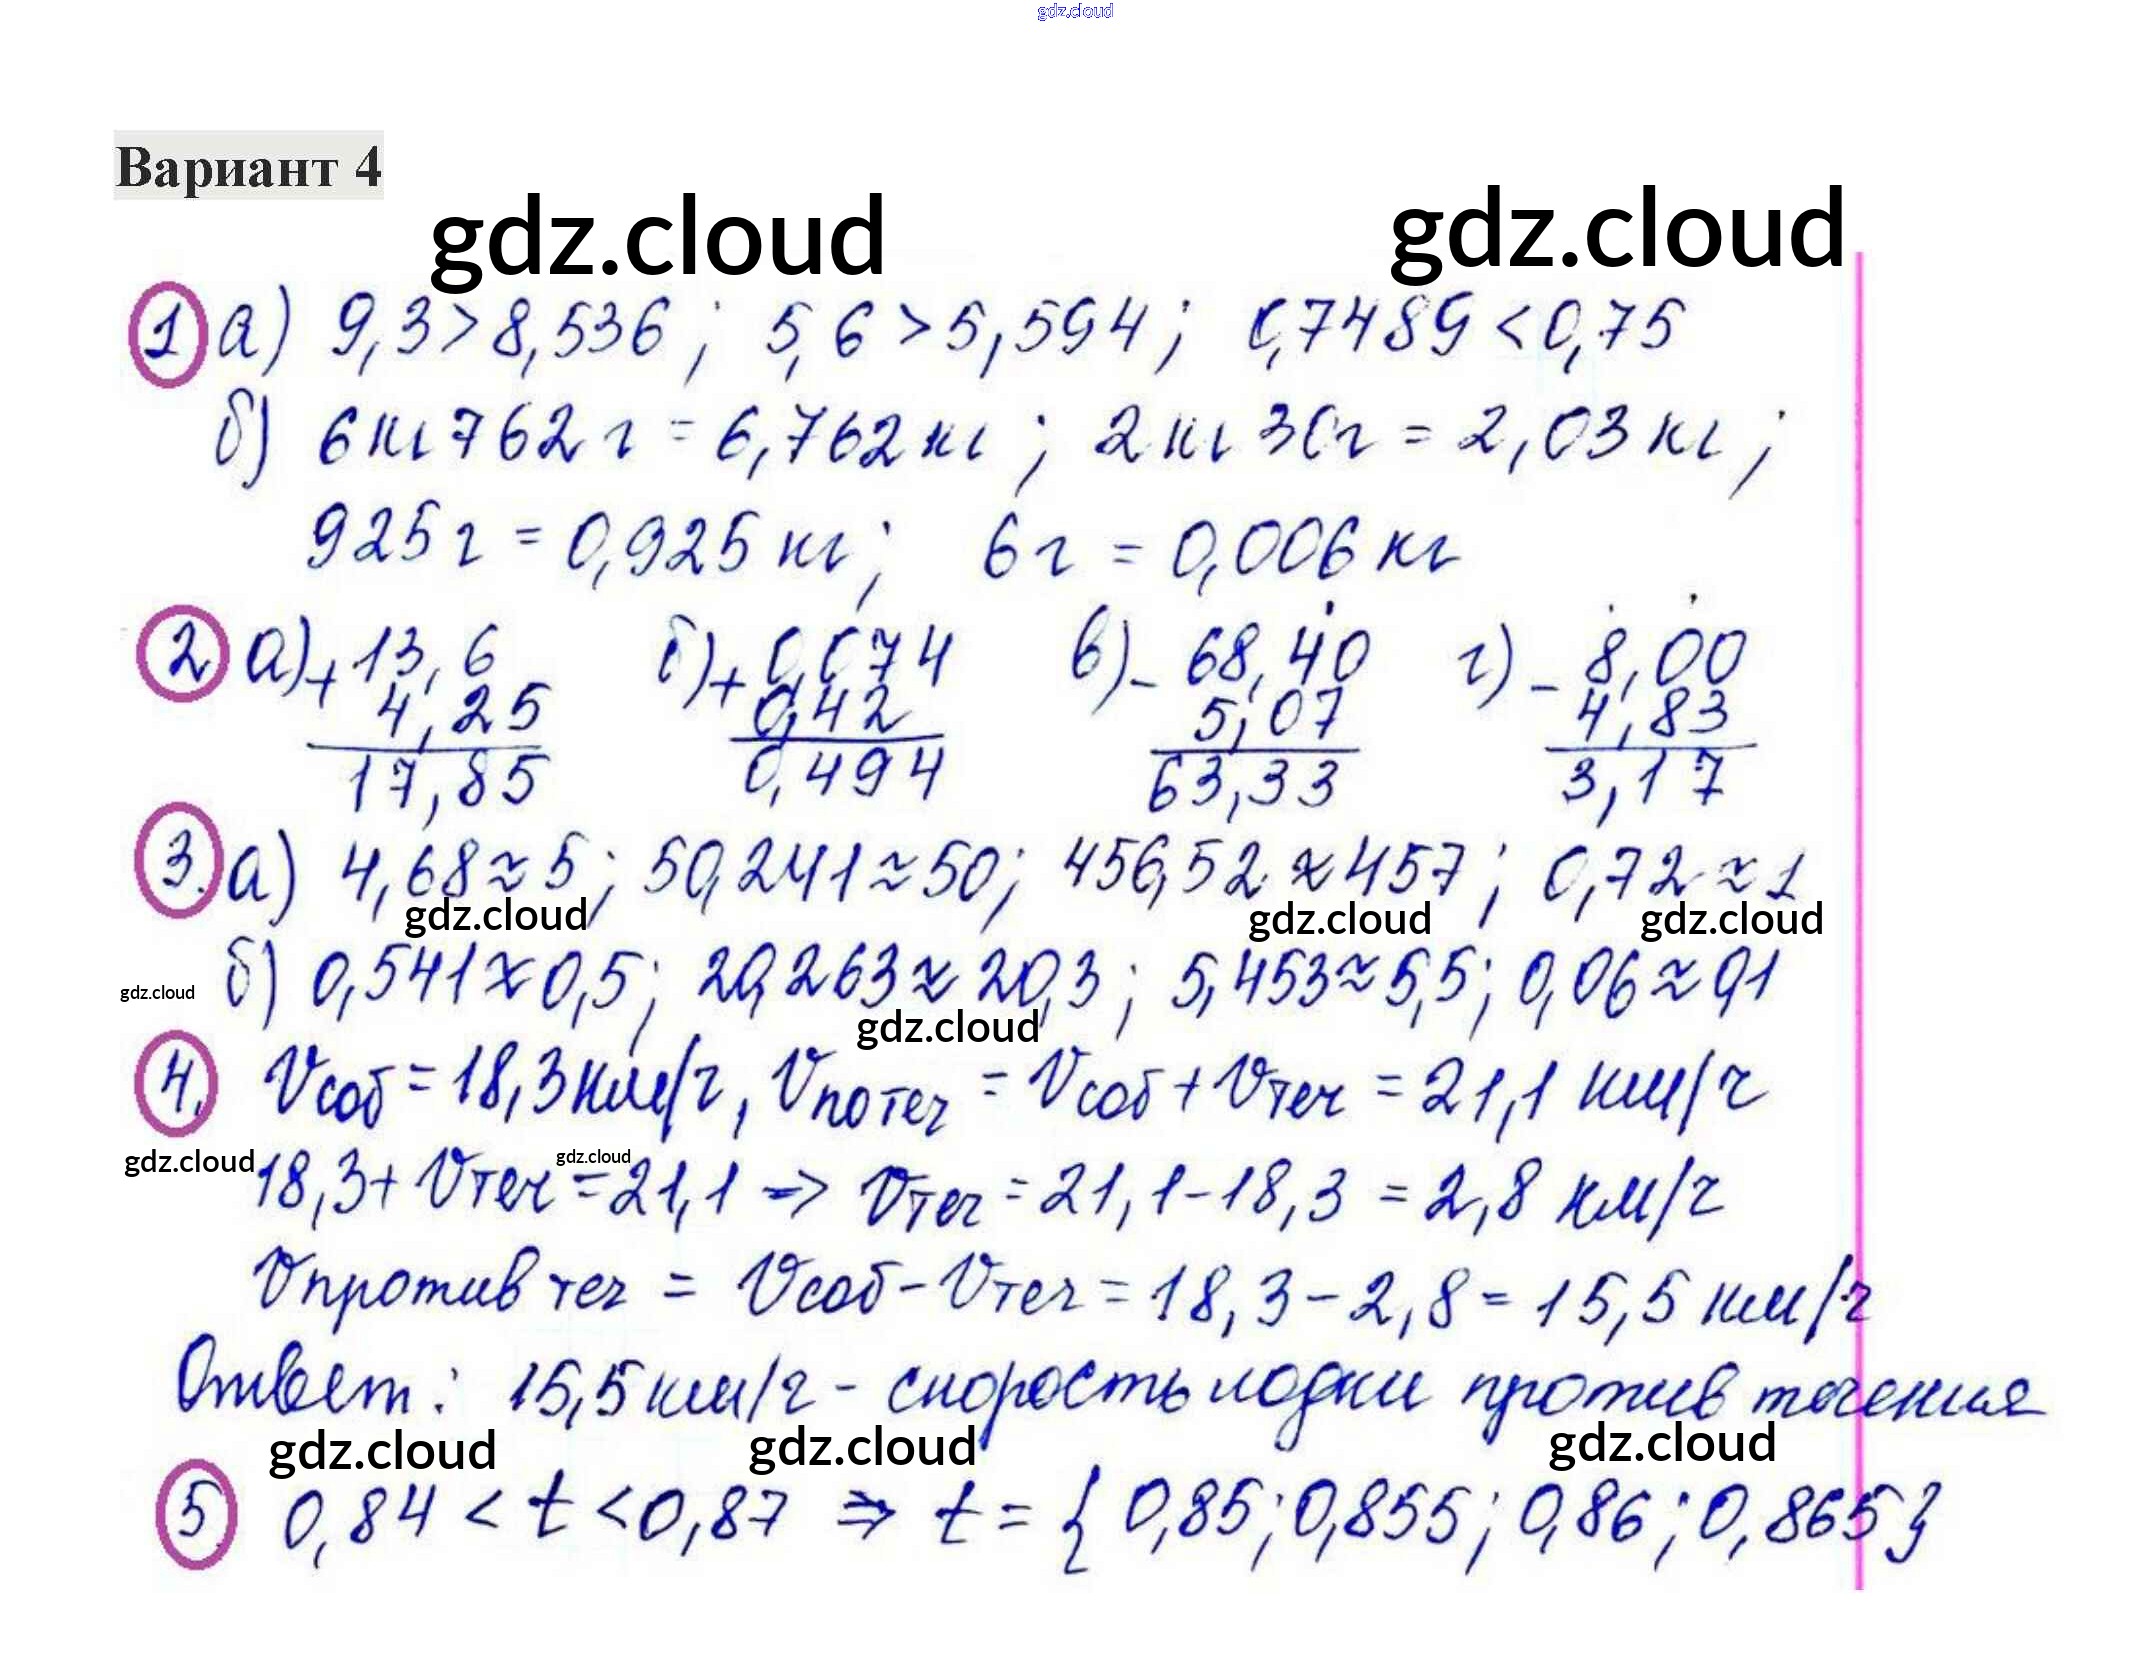 gdz.cloud
Вариант 4
gdz.cloud gdz.cloud
1 а) 9,3 > 8,536 ; 5,6 > 5,594 ; 0,7489 < 0,75
б) 6 кг 762 г = 6,762 кг ; 2 кг 30 г = 2,03 кг ;
925 г = 0,925 кг ; 6 г = 0,006 кг
2 а) + 13,6 б) + 0,074 в) - 68,40 г) - 8,00
4,25 0,42 5,07 4,83
17,85 0,494 63,33 3,17
3. а) 4,68 ≈ 5 ; 50,241 ≈ 50 ; 456,52 ≈ 457 ; 0,72 ≈ 1
gdz.cloud gdz.cloud gdz.cloud
gdz.cloud б) 0,541 ≈ 0,5 ; 20,263 ≈ 20,3 ; 5,453 ≈ 5,5 ; 0,06 ≈ 0,1
gdz.cloud
4. Vсоб = 18,3 км/ч , Vпо теч = Vсоб + Vтеч = 21,1 км/ч
gdz.cloud gdz.cloud
18,3 + Vтеч = 21,1 => Vтеч = 21,1 - 18,3 = 2,8 км/ч
Vпротив теч = Vсоб - Vтеч = 18,3 - 2,8 = 15,5 км/ч
Ответ : 15,5 км/ч - скорость лодки против течения
gdz.cloud gdz.cloud gdz.cloud
5 0,84 < t < 0,87 => t = { 0,85 ; 0,855 ; 0,86 ; 0,865 }